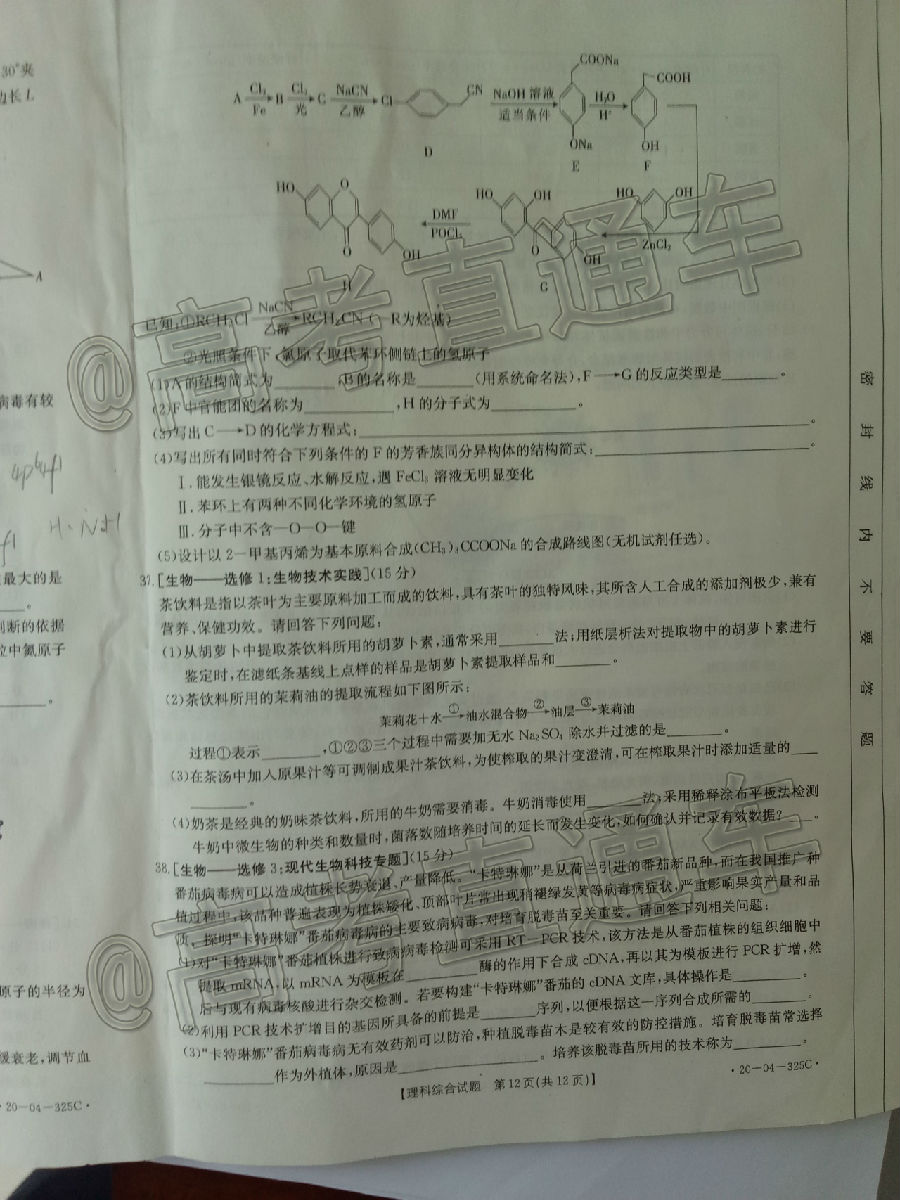 30°夹
边长 L
A
病毒有较
最大的是
。
判断的依据
位中氮原子
。
原子的半径为
缓衰老,调节血
·20-04-325C·
A Cl₂ Fe B Cl₂ 光 C NaCN 乙醇 Cl CN NaOH 溶液 适当条件 COONa H₂O H⁺ COOH
ONa OH
D E F
HO O O OH DMF POCl₃ HO OH O OH HO OH ZnCl₂
H G
已知:①RCH₂Cl NaCN 乙醇 RCH₂CN(—R为烃基)
②光照条件下,氯原子取代苯环侧链上的氢原子
(1)A的结构简式为________,B的名称是________(用系统命名法),F⟶G的反应类型是________。
(2)F中官能团的名称为________,H的分子式为________。
(3)写出C⟶D的化学方程式:________。
(4)写出所有同时符合下列条件的F的芳香族同分异构体的结构简式:________。
Ⅰ.能发生银镜反应、水解反应,遇FeCl₃溶液无明显变化
Ⅱ.苯环上有两种不同化学环境的氢原子
Ⅲ.分子中不含—O—O—键
(5)设计以2-甲基丙烯为基本原料合成(CH₃)₃CCOONa的合成路线图(无机试剂任选)。
37.[生物——选修1:生物技术实践](15分)
茶饮料是指以茶叶为主要原料加工而成的饮料,具有茶叶的独特风味,其所含人工合成的添加剂极少,兼有
营养、保健功效。请回答下列问题:
(1)从胡萝卜中提取茶饮料所用的胡萝卜素,通常采用________法;用纸层析法对提取物中的胡萝卜素进行
鉴定时,在滤纸条基线上点样的样品是胡萝卜素提取样品和________。
(2)茶饮料所用的茉莉油的提取流程如下图所示:
茉莉花+水 ①⟶ 油水混合物 ②⟶ 油层 ③⟶ 茉莉油
过程①表示________,①②③三个过程中需要加无水Na₂SO₄除水并过滤的是________。
(3)在茶汤中加入原果汁等可调制成果汁茶饮料,为使榨取的果汁变澄清,可在榨取果汁时添加适量的____
________。
(4)奶茶是经典的奶味茶饮料,所用的牛奶需要消毒。牛奶消毒使用________法;采用稀释涂布平板法检测
牛奶中微生物的种类和数量时,菌落数随培养时间的延长而发生变化,如何确认并记录有效数据?____。
38.[生物——选修3:现代生物科技专题](15分)
番茄病毒病可以造成植株长势衰退、产量降低。“卡特琳娜”是从荷兰引进的番茄新品种,而在我国推广种
植过程中,该品种普遍表现为植株矮化、顶部叶片常出现稍褪绿发黄等病毒病症状,严重影响果实产量和品
质。探明“卡特琳娜”番茄病毒病的主要致病病毒,对培育脱毒苗至关重要。请回答下列相关问题:
(1)对“卡特琳娜”番茄植株进行致病病毒检测可采用RT-PCR技术,该方法是从番茄植株的组织细胞中
提取mRNA,以mRNA为模板在________酶的作用下合成cDNA,再以其为模板进行PCR扩增,然
后与现有病毒核酸进行杂交检测。若要构建“卡特琳娜”番茄的cDNA文库,具体操作是________。
(2)利用PCR技术扩增目的基因所具备的前提是________序列,以便根据这一序列合成所需的________。
(3)“卡特琳娜”番茄病毒病无有效药剂可以防治,种植脱毒苗木是较有效的防控措施。培育脱毒苗常选择
________作为外植体,原因是________。培养该脱毒苗所用的技术称为________。
【理科综合试题 第12页(共12页)】
·20-04-325C·
密 封 线 内 不 要 答 题
@高考直通车
@高考直通车